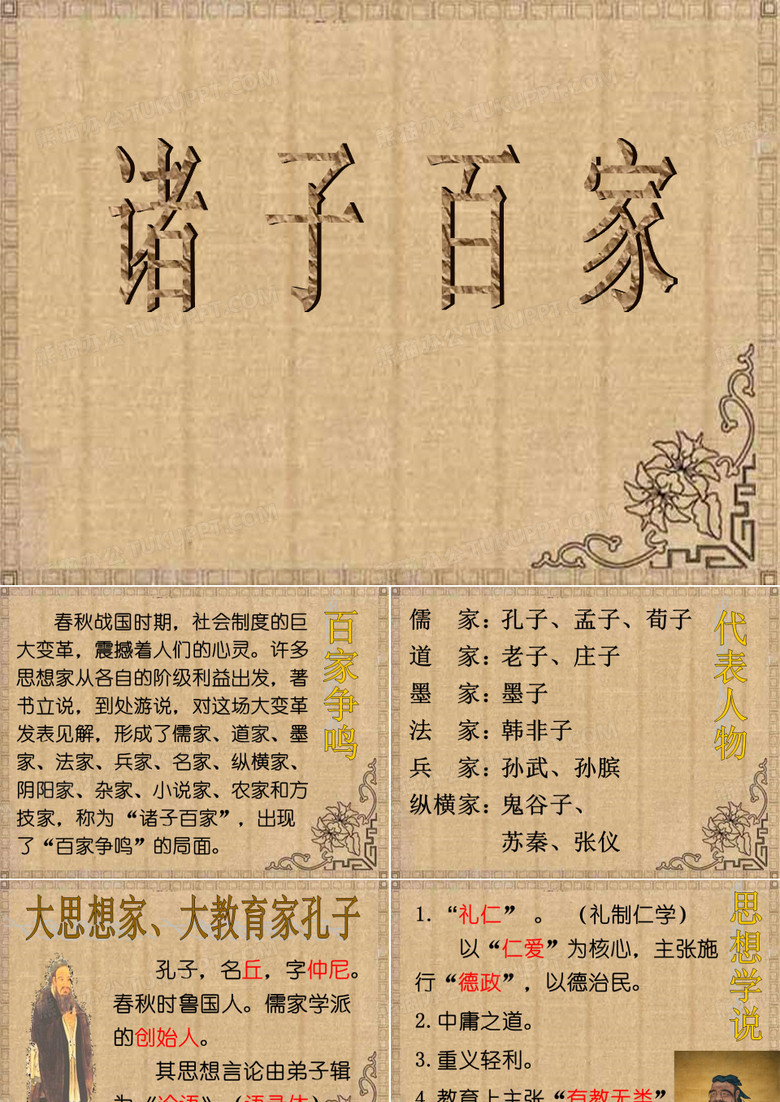 诸子百家
百家争鸣
春秋战国时期，社会制度的巨
大变革，震撼着人们的心灵。许多
思想家从各自的阶级利益出发，著
书立说，到处游说，对这场大变革
发表见解，形成了儒家、道家、墨
家、法家、兵家、名家、纵横家、
阴阳家、杂家、小说家、农家和方
技家，称为“诸子百家”，出现
了“百家争鸣”的局面。
代表人物
儒　家：孔子、孟子、荀子
道　家：老子、庄子
墨　家：墨子
法　家：韩非子
兵　家：孙武、孙膑
纵横家：鬼谷子、
苏秦、张仪
大思想家、大教育家孔子
孔子，名丘，字仲尼。
春秋时鲁国人。儒家学派
的创始人。
其思想言论由弟子辑
为《论语》（语录体）
思想学说
1.“礼仁”。（礼制仁学）
以“仁爱”为核心，主张施
行“德政”，以德治民。
2.中庸之道。
3.重义轻利。
4.教育上主张“有教无类”